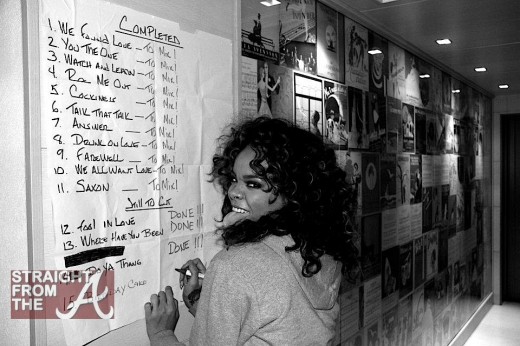 COMPLETED
1. WE FOUND LOVE – TO MIX!
2. YOU THE ONE – TO MIX!
3. WATCH AND LEARN – TO MIX!
4. ROC ME OUT – TO MIX!
5. COCKINESS – TO MIX!
6. TALK THAT TALK – TO MIX!
7. ANSWER – TO MIX!
8. DRUNK ON LOVE – TO MIX!
9. FAREWELL – TO MIX!
10. WE ALL WANT LOVE – TO MIX!
11. SAXON – TO MIX!
STILL TO CUT
12. FOOL IN LOVE DONE!!!
13. WHERE HAVE YOU BEEN DONE!!!
DONE!!!
DO YA THANG
CAKE
STRAIGHT
FROM THE A